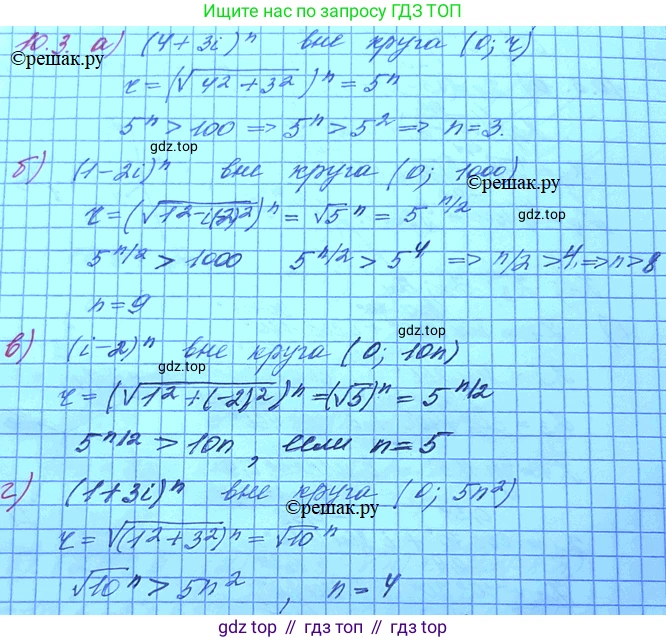 Ищите нас по запросу ГДЗ ТОП
10.3. а) (4+3i)^n вне круга (0; r)
©решак.ру
r=(√4²+3²)^n = 5^n
5^n > 100 => 5^n > 5² => n=3.
gdz.top
б) (1-2i)^n вне круга (0; 1000)
©решак.ру
r=(√1²-i(2)²)^n = √5^n = 5^n/2
gdz.top
5^n/2 > 1000 5^n/2 > 5^4 => n/2 > 4 => n > 8
n=9
gdz.top
в) (i-2)^n вне круга (0; 10n)
gdz.top
r=(√1²+(-2)²)^n = (√5)^n = 5^n/2
5^n/2 > 10n, если n=5
г) (1+3i)^n вне круга (0; 5n²)
©решак.ру
r=√(1²+3²)^n = √10^n
√10^n > 5n², n=4
gdz.top
gdz.top // гдз.топ // gdz.top